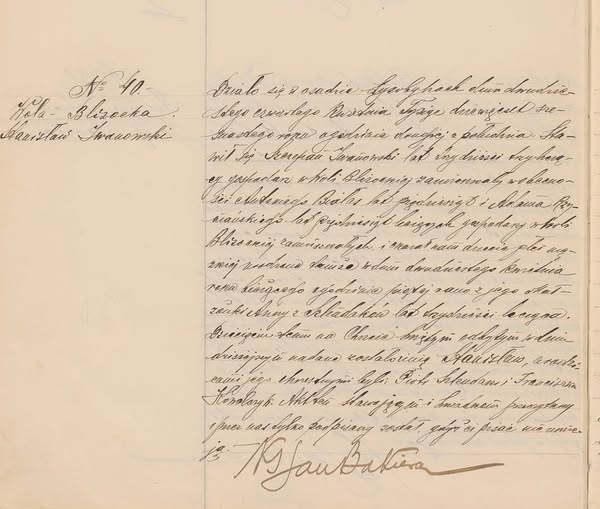 № 40.
Wola - Blizocka.
Stanisław Iwanowski
Działo się w osadzie Łysobykach dnia dwudzie-
stego czwartego kwietnia tysiąc dziewięćset sze-
snastego roku o godzinie drugiej z południa. Sta-
wił się Szczepan Iwanowski lat trzydzieści trzy liczą-
cy gospodarz w Woli Blizockiej zamieszkały w obecno-
ści Antoniego Białas lat pięćdziesiąt i Adama
lat pięćdziesiąt liczących gospodarzy w Woli
Blizockiej zamieszkałych i okazał nam dziecię płci mę-
zkiej urodzone tamże w dniu dwudziestego kwietnia
roku bieżącego o godzinie piątej rano z jego Mał-
żonki Anny z lat trzydzieści liczącej.
Dziecięciu temu na Chrzcie świętym odbytym w dniu
dzisiejszym nadane zostało imię Stanisław, a rodzi-
cami jego chrestnymi byli: Piotr i Franciszka
Kowalczyk. Akt ten stawającym i świadkom przeczytany
i przez nas tylko podpisany został, gdyż ci pisać nie umie-
ją.
Jan Batiera